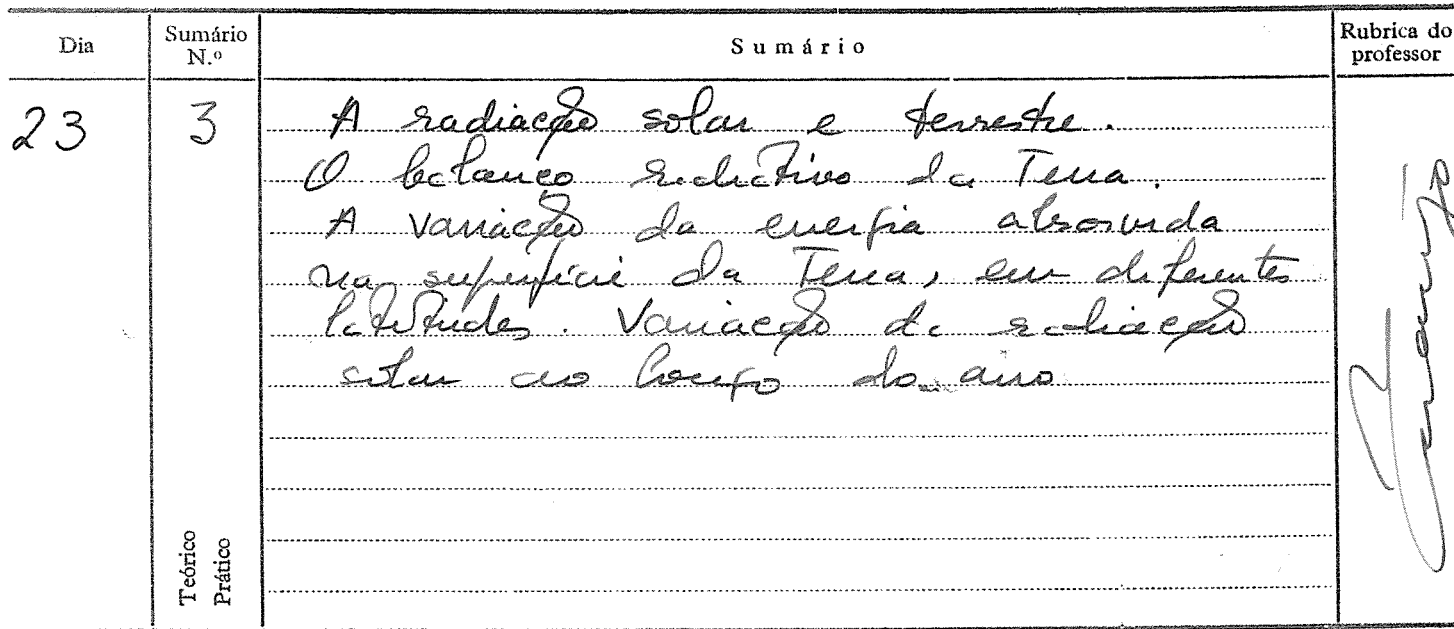 Dia Sumário N.º Sumário Rubrica do professor
23 3 A radiação solar e terrestre.
O balanço radiativo da Terra.
A variação da energia absorvida
na superfície da Terra, em diferentes
latitudes. Variação da radiação
solar ao longo do ano
Teórico
Prático